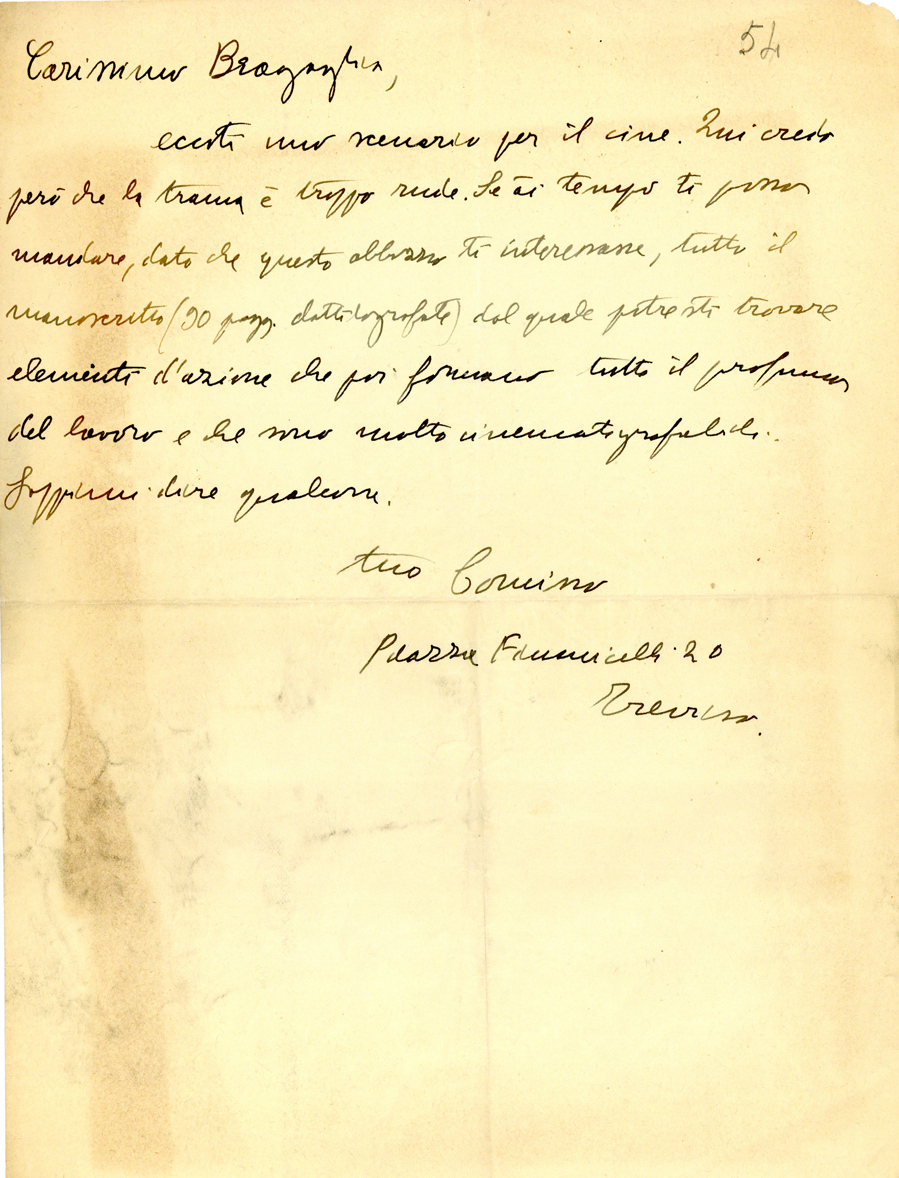 54
Carissimo Bragaglia,
eccoti uno scenario per il cine. Qui credo
però che la trama è troppo rude. Se ài tempo ti posso
mandare, dato che questo abbozzo ti interessasse, tutto il
manoscritto (90 pagg. dattilografate) dal quale potresti trovare
elementi d'azione che poi formano tutto il profumo
del lavoro e che sono molto cinematografabili.
Sappimi dire qualcosa.
tuo Comisso
Piazza Fiumicelli 20
Treviso.